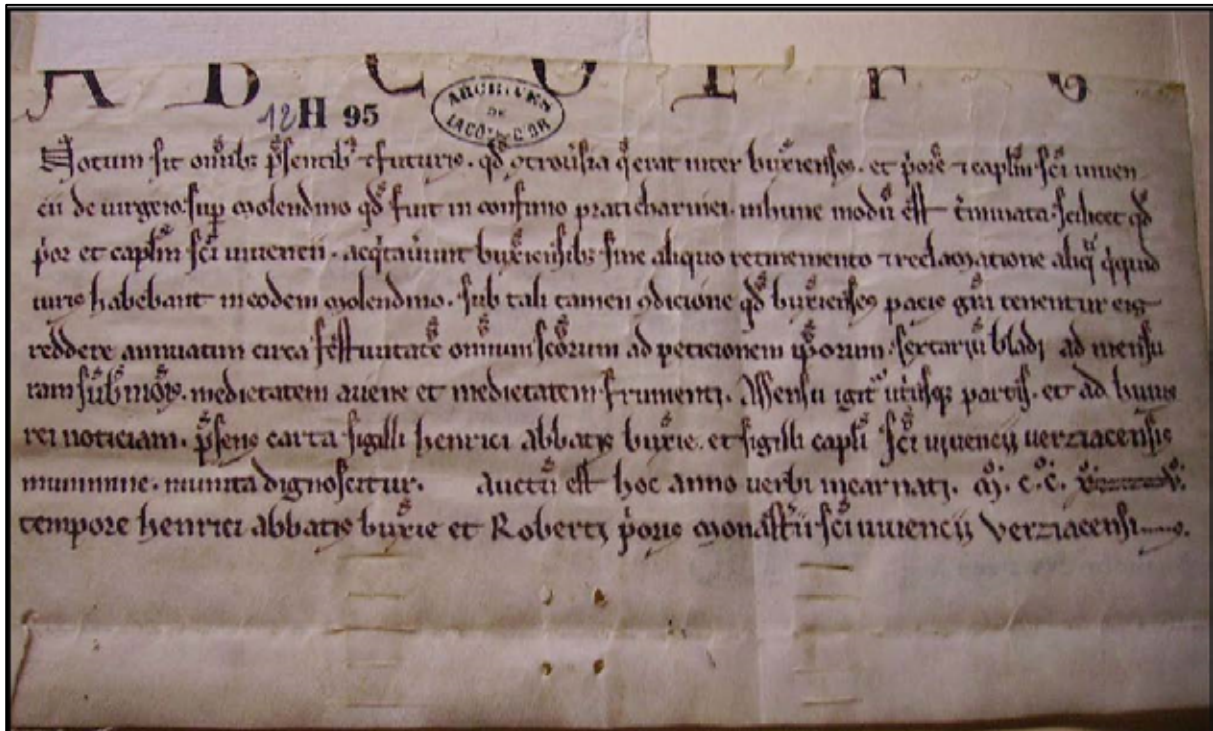 A B C D E F G
12 H 95
ARCHIVES DE LA CÔTE D'OR
Notum sit omib; p̄sentib; ⁊ futuris. qd̄ ꝯtrou̾sia q̄ erat inter buxienses. et p̾ore ⁊ capl̄m sc̄i uiuen
cii de uirgeio. sup̄ molendino qd̄ fuit in confinio prati in hunc modū ē̄st t̾minata. scilicet qd̄
p̾or et capl̄m sc̄i uiuentii. acq̾tau̾unt buxiensib; sine aliquo retinemento ⁊ reclamatione aliq̾ q̾cquid
iuris habebant in eodem molendino. sub tali tamen ꝯdicione qd̄ buxienses pacis gr̄a tenentur eis
reddere annuatim circa festiuitatē omnium sc̄orum ad peticionem ip̄orum. sextariū bladi ad mensu
ram medietatem auene et medietatem frumenti. Assensu igit̾ ut̾usq; partis. et ad huius
rei noticiam. p̄sens carta sigilli henrici abbatis buxie. et sigilli capl̄i sc̄i uiuencij uerziacensis
munimine. munita dignoscitur. Actū est hoc anno uerbi incarnati. M. C. C. V.
tempore henrici abbatis buxie et Roberti p̾oris monast̾ii sc̄i uiuencij Verziacensis.